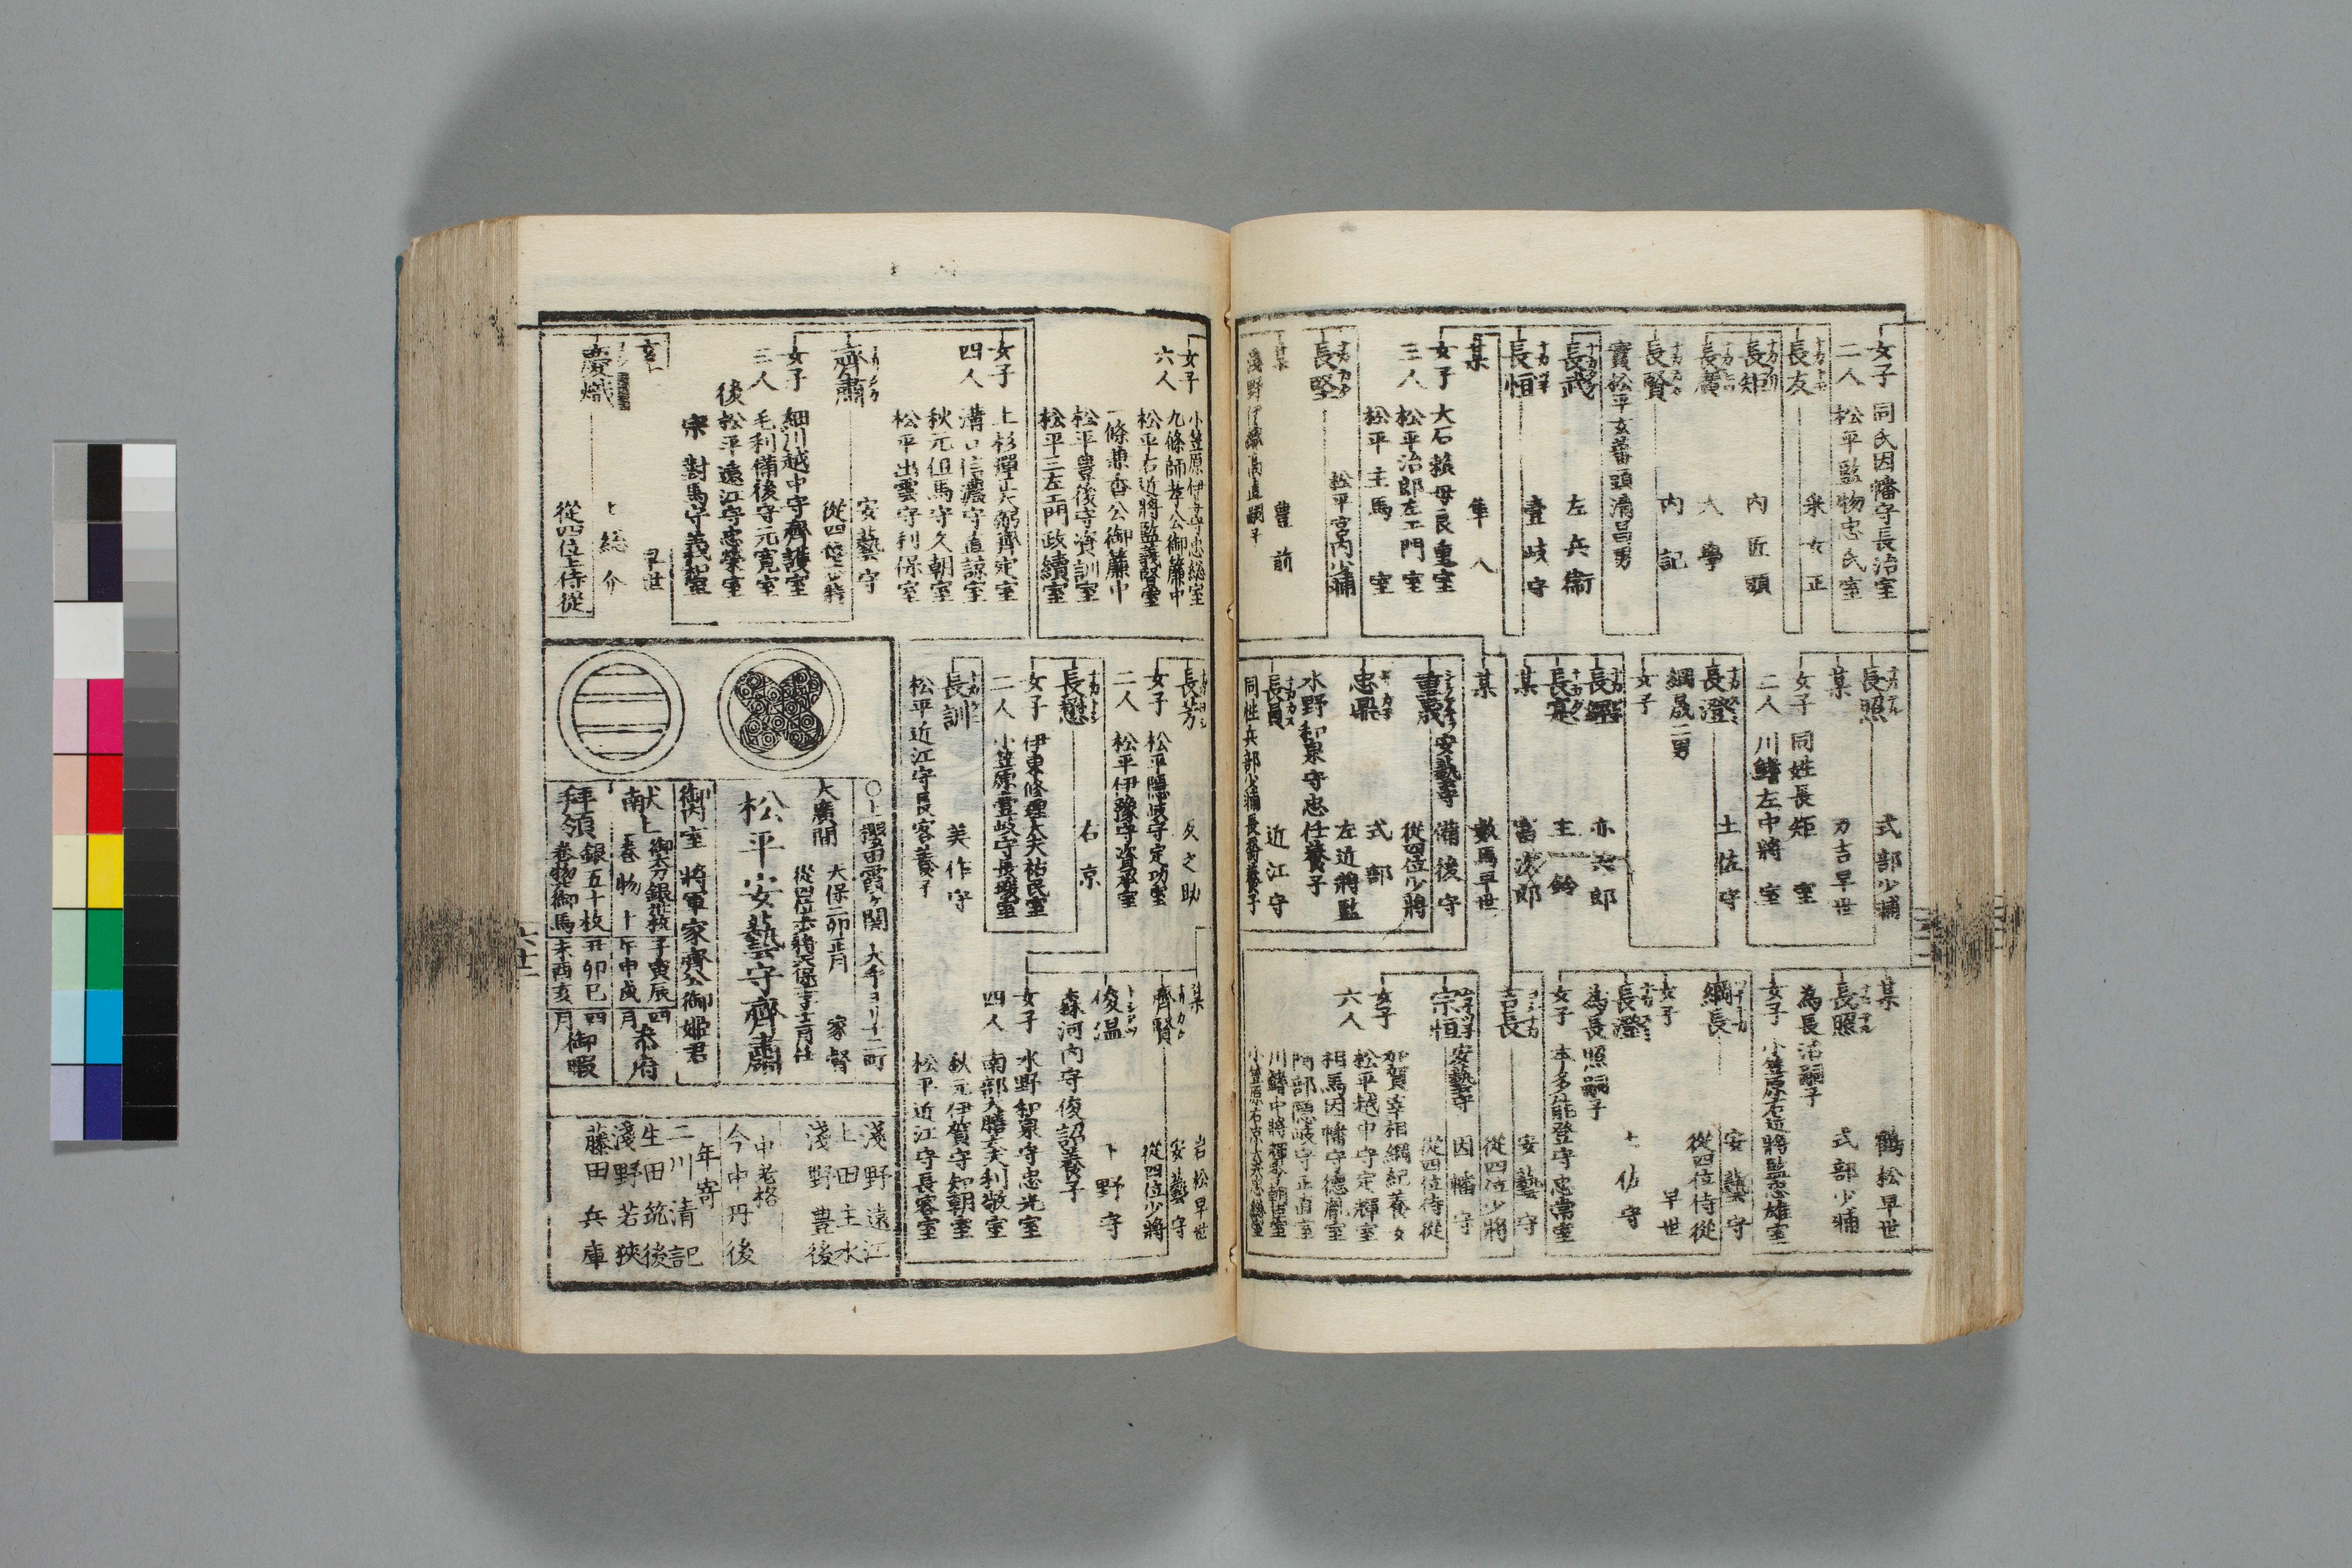 女子 同氏因幡守長治室
二人 松平監物忠民室
長友 采女正
長矩 内匠頭
長廣 大學
長賢 内記
實松平玄蕃頭清昌男
長武 左兵衞
長恒 壹岐守
某 隼人
女子 大石頼母良重室
三人 松平治郎左エ門室
松平主馬室
長堅 松平宮内少輔
某 豊前
長照 式部少輔
某 力吉早世
女子 同姓長矩室
二人 川鰭左中將室
長澄 土佐守
綱晟二男
女子
亦六郎
長寔 主鈴
某 富次郎
某 数馬早世
重晟 安藝守 備後守
從四位少將
忠鼎 式部
左近將監
水野和泉守忠任養子
長員 近江守
同性兵部少輔長喬養子
某 鶴松早世
長照 式部少輔
為長治嗣子
女子 小笠原右近將監忠雄室
綱長 安藝守
從四位侍從
女子 早世
長澄 土佐守
為長照嗣子
女子 本多能登守忠常室
吉長 安藝守
從四位少將
宗恒 安藝守 因幡守
從四位侍從
女子 加賀宰相綱紀養女
六人 松平越中守定輝室
相馬因幡守德胤室
阿部隱岐守正直室
川鰭中將室
小笠原右京大夫忠総室
女子 小笠原伊与守忠総室
六人 九條師孝公御簾中
松平右近將監義督室
一條兼香公御簾中
松平豊後守資訓室
松平三左エ門政續室
女子 上杉彈正大弼齊定室
四人 溝口信濃守直諒室
秋元但馬守久朝室
松平出雲守利保室
齊肅 安藝守
從四位少將
女子 細川越中守齊護室
三人 毛利備後守元寛室
後 松平遠江守忠榮室
宗對馬守義和室
早世
慶熾 上総介
從四位上侍從
長芳 久之助
女子 松平隱岐守定功室
二人 松平伊豫守資承室
長懋 右京
女子 伊東修理大夫祐民室
二人 小笠原壹岐守長堯室
長訓 美作守
松平近江守長容養子
某 岩松早世
齊賢 安藝守
從四位少將
俊温 下野守
森河内守俊詔養子
女子 水野和泉守忠光室
四人 南部大膳大夫利敬室
秋元伊賀守知朝室
松平近江守長容室
〇上櫻田霞ヶ関 大手ヨリ十二町
大廣間 天保二卯正月 家督
松平安藝守齊肅
御内室 將軍家齊公御姫君
献上 御太刀銀廿枚 子寅辰 四月 參府
巻物十 午申戌
拜領 銀五十枚 丑卯巳 四月 御暇
巻物御馬 未酉亥
淺野遠江
上田主水
淺野豊後
中老格
今中丹後
年寄
二川清記
生田筑後
淺野若狹
藤田兵庫